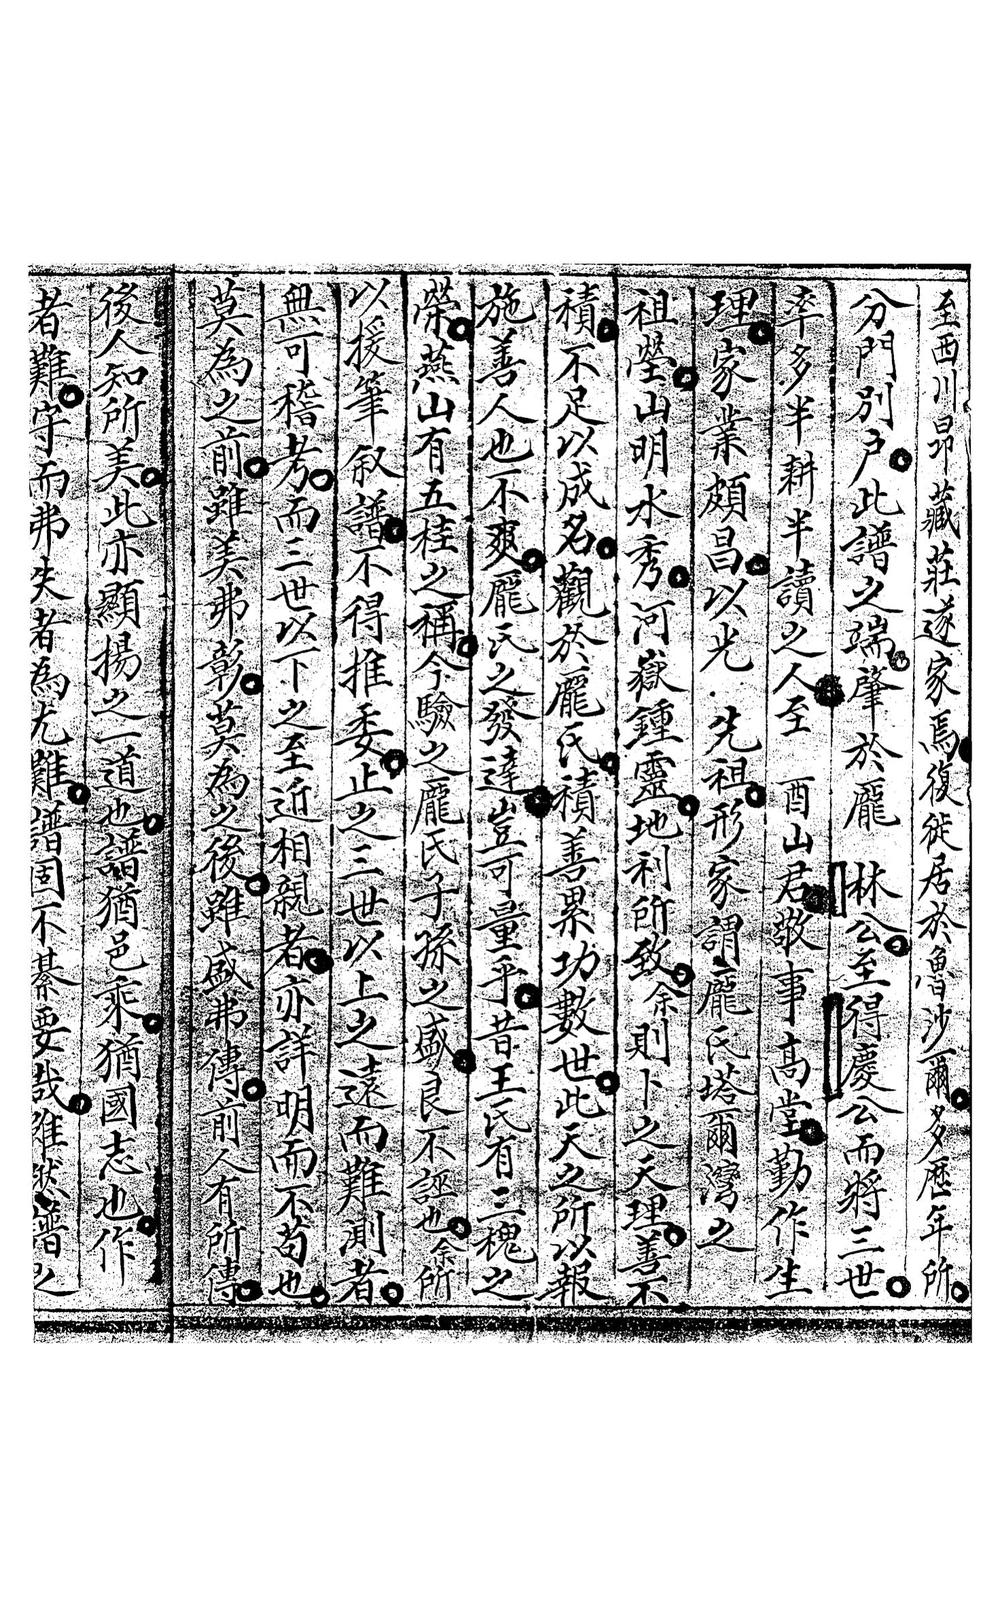 至西川昂藏莊遂家焉復徙居於魯沙爾多歷年所
分門別戶此譜之端肇於龐 林公至得慶公而將三世
率多半耕半讀之人至 酉山君敬事高堂勤作生
理家業頗昌以光 先祖形家謂龐氏塔爾灣之
祖塋山明水秀河嶽鍾靈地利所致余則卜之天理善不
積不足以成名觀於龐氏積善累功數世此天之所以報
施善人也不爽龐氏之發達豈可量乎昔王氏有三槐之
榮燕山有五桂之稱今驗之龐氏子孫之盛良不誣也余所
以援筆叙譜不得推委止之三世以上之遠而難測者
無可稽考而三世以下之至近相親者亦詳明而不苟也
莫為之前雖美弗彰莫為之後雖盛弗傳前人有所傳
後人知所美此亦顯揚之一道也譜猶邑乘猶國志也作
者難守而弗失者為尤難譜固不綦要哉雖然譜之